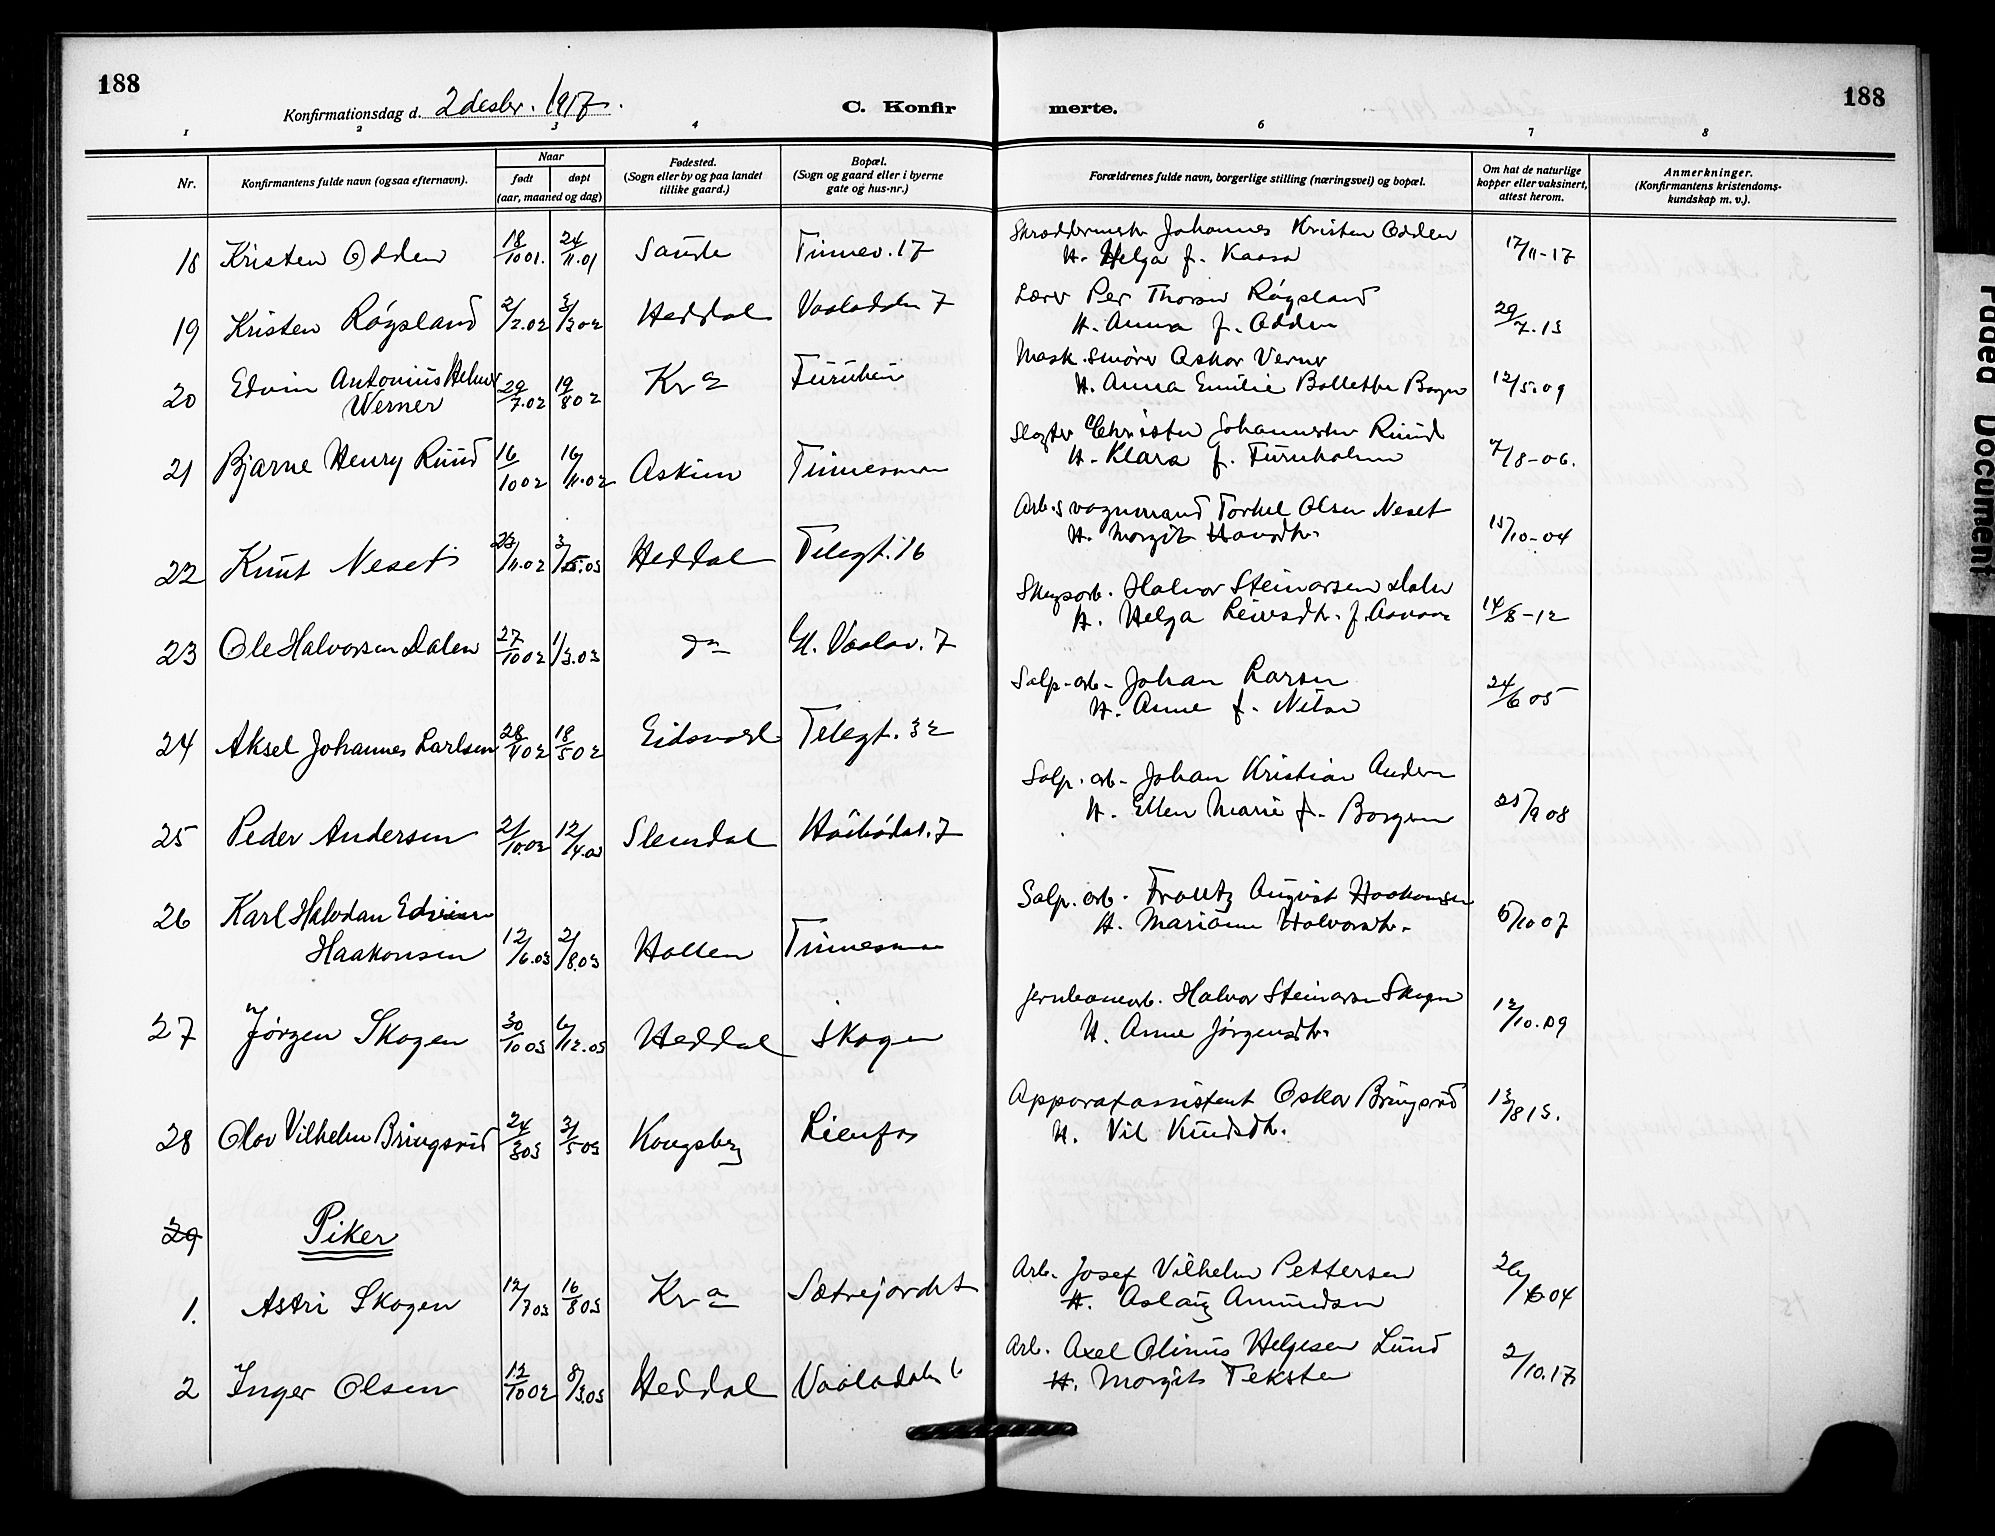 188
188
Konfirmationsdag d. 2 desbr. 1917.
C. Konfirmerte.
1 2 3 4 6 7 8
Nr.
Konfirmantens fulde navn (ogsaa efternavn).
Naar
født
døpt
(aar, maaned og dag)
Fødested.
(Sogn eller by og paa landet
tillike gaard.)
Bopæl.
(Sogn og gaard eller i byerne
gate og hus-nr.)
Forældrenes fulde navn, borgerlige stilling (næringsvei) og bopæl.
Om hat de naturlige
kopper eller vaksinert,
attest herom.
Anmerkninger.
(Konfirmantens kristendoms-
kundskap m. v.).
18 Kristen Odden 18/10 01. 24/11.01 Saude Tinnev. 17
Skræddermstr Johannes Kristen Odden
H. Helga f. Kaasa 17/11-17
19 Kristen Røgsland 2/2.02 Heddal 7
Lærer Per Thorsen Røgsland
H. Anna f. Odden 29/7.13
20 Edvin Antonius Helmer
Werner 29/7.02 19/8 02 Kra Furuhein
Mask.smører Oskar Verner
H. Anna Emilie 12/5.09
21 Bjarne Henry Ruud 16/10 02 16/11.02 Askim Tinnesmoen
Slagter Christen Johannesen Ruud
H. Klara f. Furuholm 7/8-06.
22 Knut Neset 23/11.02 Heddal Telegt. 16
Arb.s vognmand Torkel Olsen Neset
H. Margit Havsdtr. 15/10-04
23 Ole Halvorsen Dalen 27/10 02 1/3.03 do Gl. Vaalav. 7
Skogsarb. Halvor Steinarsen Dalen
H. Helga Leivsdtr. f. 14/8-12
24 Aksel Johannes Larsen 18/5 02 Eidsvold Telegt. 32
Salp.-arb. Johan Larsen
H. Anne f. 24/6 05
25 Peder Andersen 2/10.02 12/4.03 Slemdal 7
Salp.-arb. Johan Kristian Andersen
H. Ellen Marie f. Borgen 25/9 08
26 Karl Halvdan
Haakonsen 12/6.03 2/8.03 Hollen Tinnesmoen
Salp.arb. Frantz August Haakonsen
H. Marianne Halvorsdtr. 6/10 07
27 Jørgen Skogen 30/10 03 6/12.03 Heddal Skogen
Jernbanearb. Halvor Steinarsen Skogen
H. Anne Jørgensdtr. 12/10.09
28 Olav Vilhelm Bringsrud 24/3 03 3/5 03 Kongsberg Lienfos
Apparatassistent Oskar Bringsrud
H. Vil Knudsdtr. 13/8 13.
29 Piker
1. Astri Skogen 12/7 03 16/8 03 Kra Sætrejordet
Arb. Josef Vilhelm Pettersen
H. Aslaug Amundsen 26/6 04
2 Inger Olsen 12/10 02 8/3.03 Heddal
Arb. Axel Olinus Helgesen Lund
H. Margit Tekster 2/10.17
Faded Document